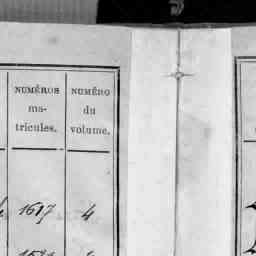 NUMÉROS
ma-
tricules.
NUMÉRO
du
volume.
1617 4